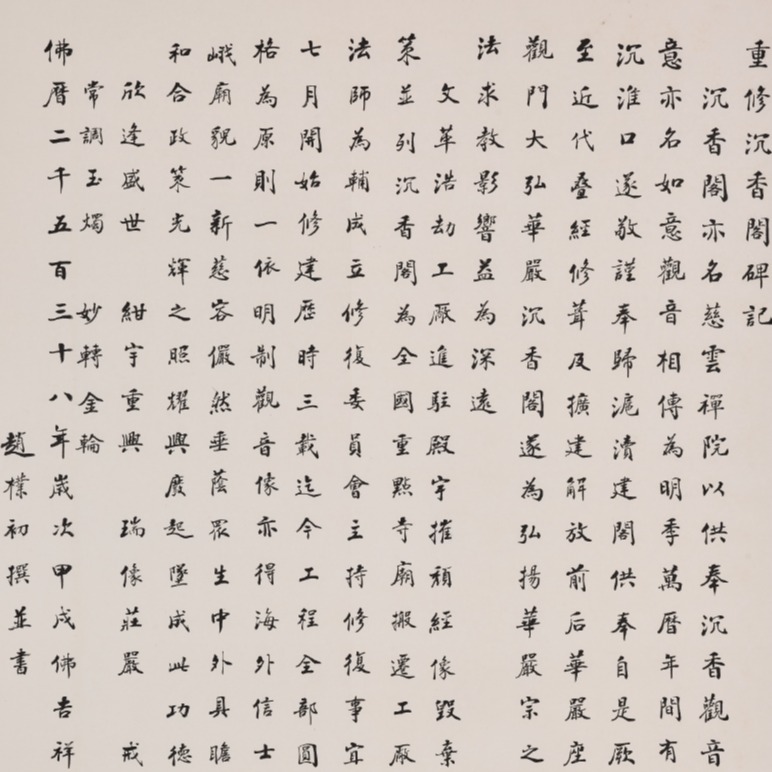 重修沉香閣碑記
沉香閣亦名慈雲禪院以供奉沉香觀音
意亦名如意觀音相傳為明季萬曆年間有
沉淮口遂敬謹奉歸滬瀆建閣供奉自是厥
至近代疊經修葺及擴建解放前后華嚴座
觀門大弘華嚴沉香閣遂為弘揚華嚴宗之
法求教影響益為深遠
文革浩劫工厰進駐殿宇摧頹經像毀棄
策並列沉香閣為全國重點寺廟搬遷工厰
法師為輔成立修復委員會主持修復事宜
七月開始修建歷時三載迄今工程全部圓
格為原則一依明制觀音像亦得海外信士
峨廟貌一新慈容儼然垂蔭眾生中外具瞻
和合政策光輝之照耀興廢起墜成此功德
欣逢盛世 紺宇重興 瑞像莊嚴 戒
常調玉燭 妙轉金輪
佛曆二千五百三十八年歲次甲戌佛吉祥
趙樸初撰並書